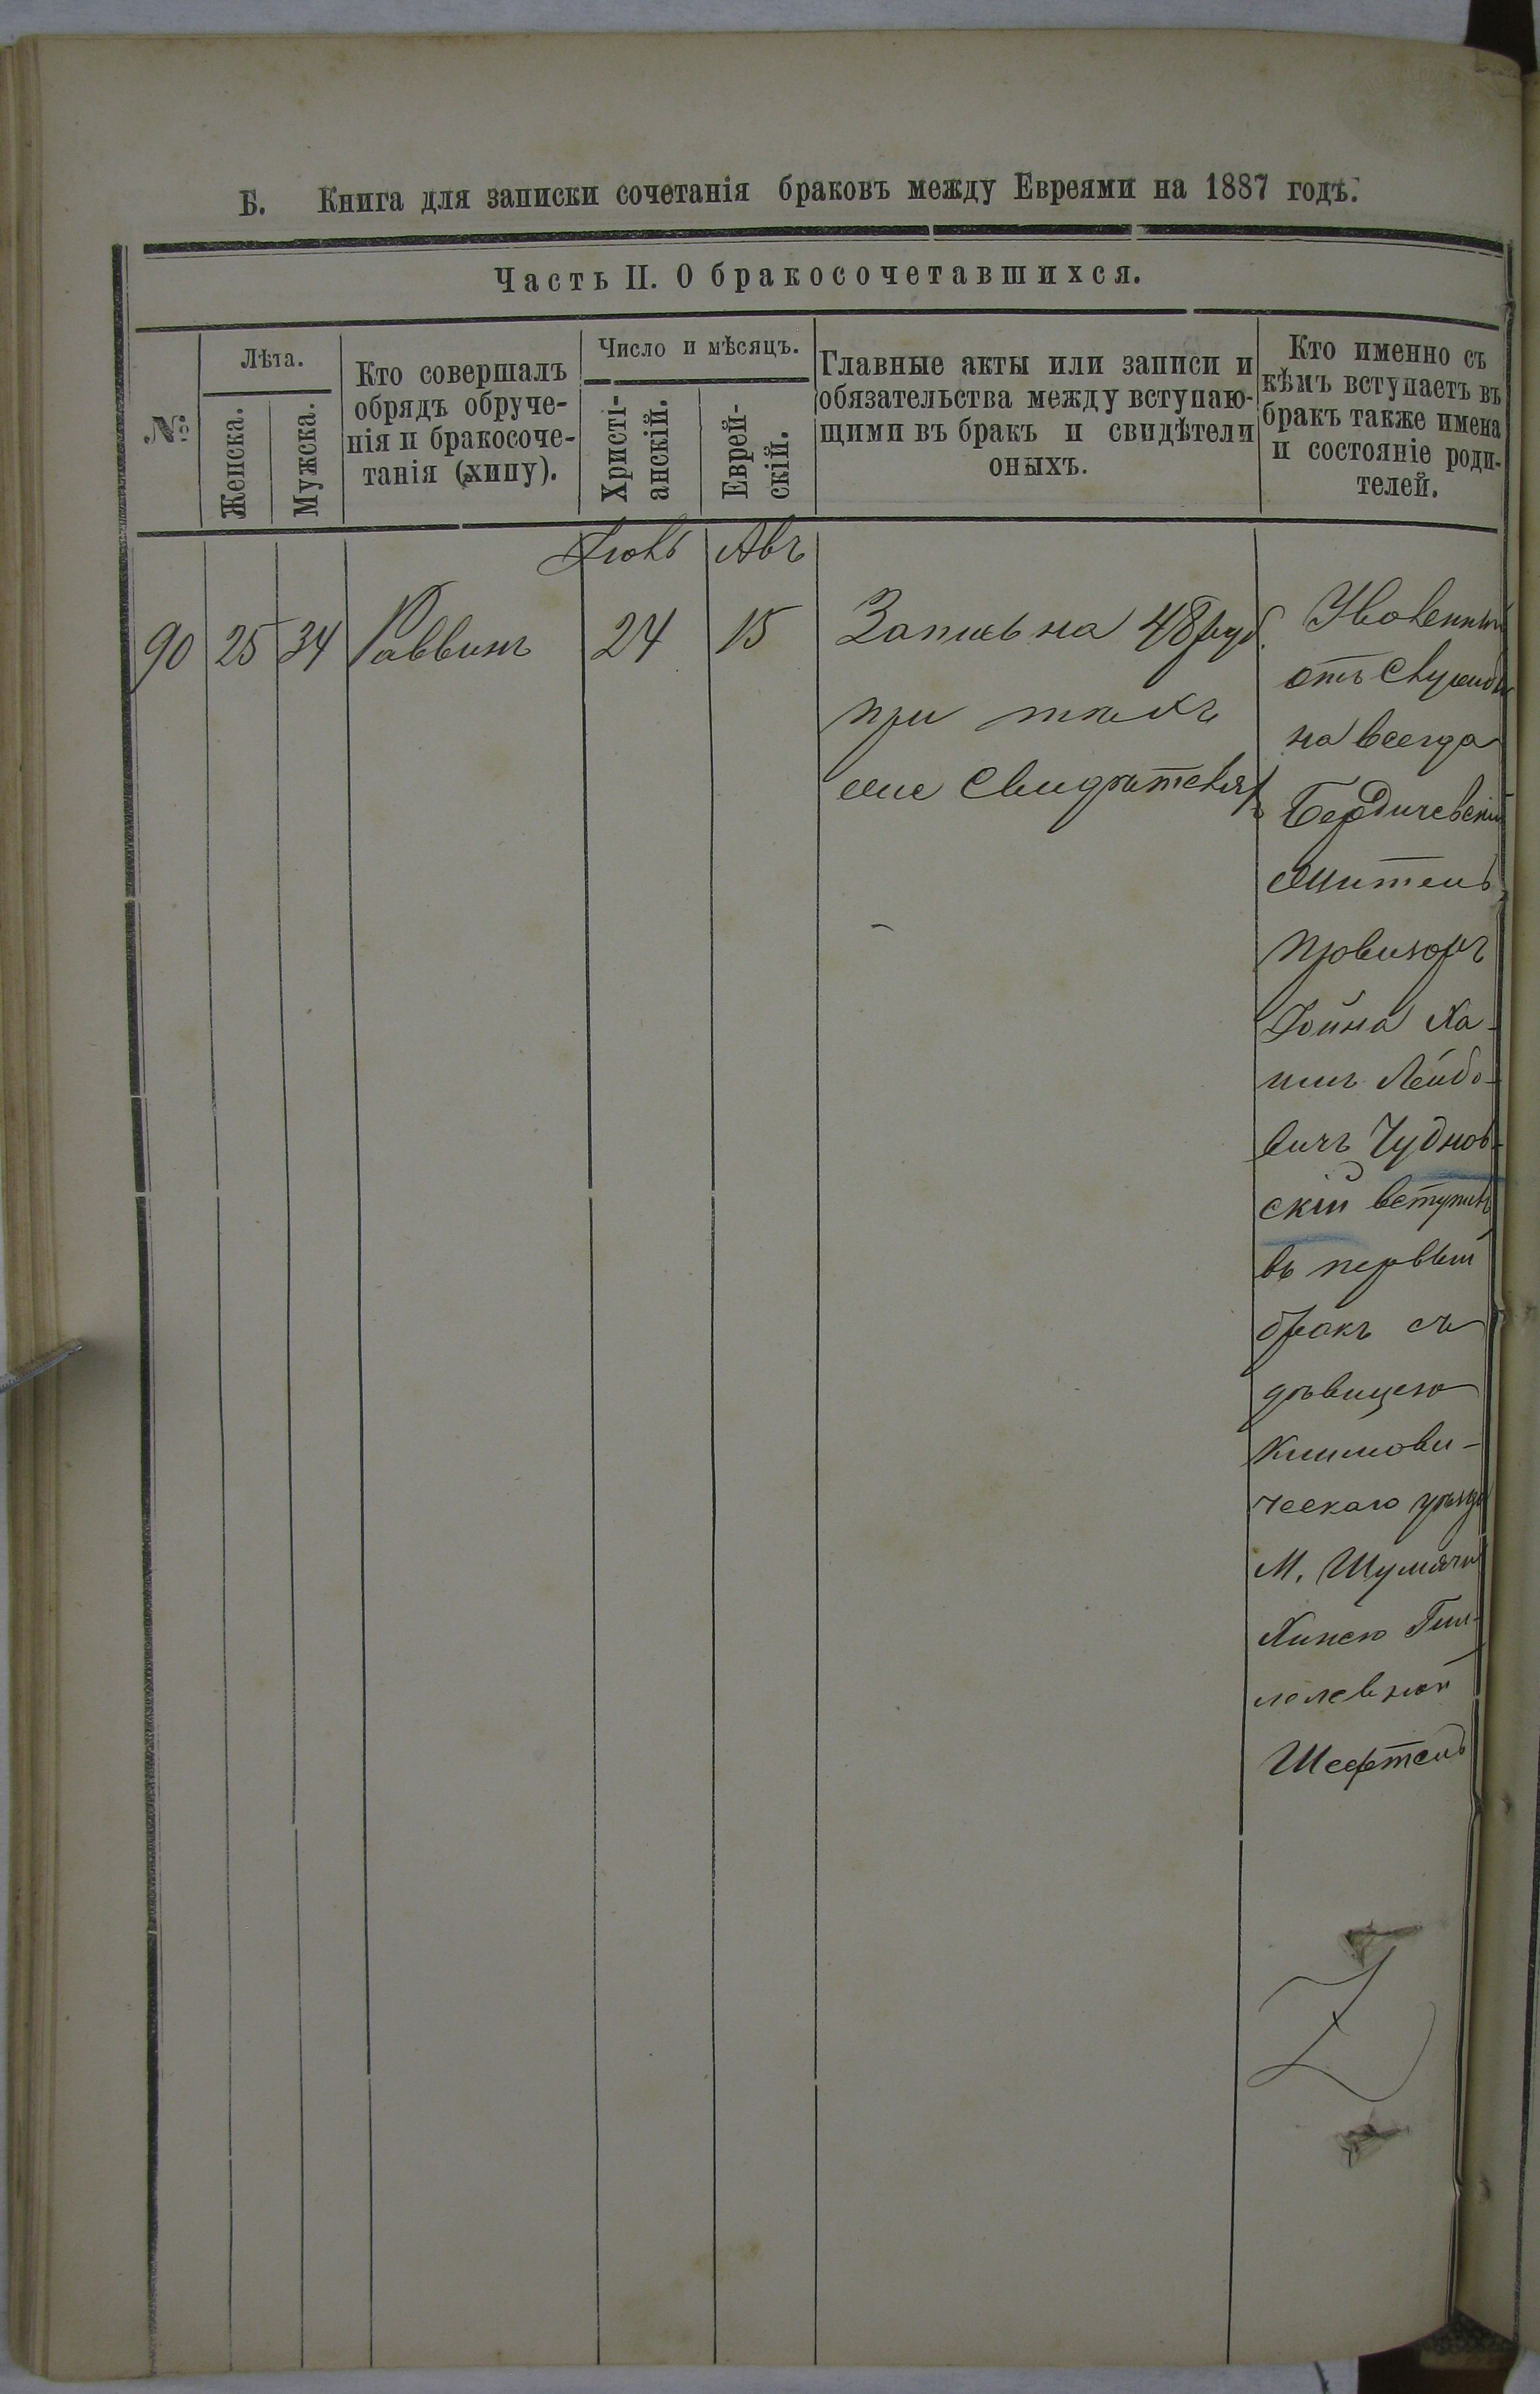 Б. Книга для записки сочетанія браковъ между Евреями на 1887 годъ.
Часть II. О бракосочетавшихся.
№
Лѣта.
Женска.
Мужска.
Кто совершалъ
обрядъ обруче-
нія и бракосоче-
танія (хипу).
Число и мѣсяцъ.
Христі-
анскій.
Еврей-
скій.
Главные акты или записи и
обязательства между вступаю-
щими въ бракъ и свидѣтели
оныхъ.
Кто именно съ
кѣмъ вступаетъ въ
бракъ также имена
и состояніе роди-
телей.
Іюль Авъ
90 25 34 Раввинъ 24 15
Запись на 48 руб.
при
свидѣтеляхъ
Уволенный
отъ службы
на всегда
Бердичевскій
житель
провизоръ
Іойна Ха-
имъ Лейбо-
вичъ Чуднов-
скій вступилъ
въ первый
бракъ съ
дѣвицею
Климови-
ческаго уѣзда
М. Шумячи
Хинею
Шефтель